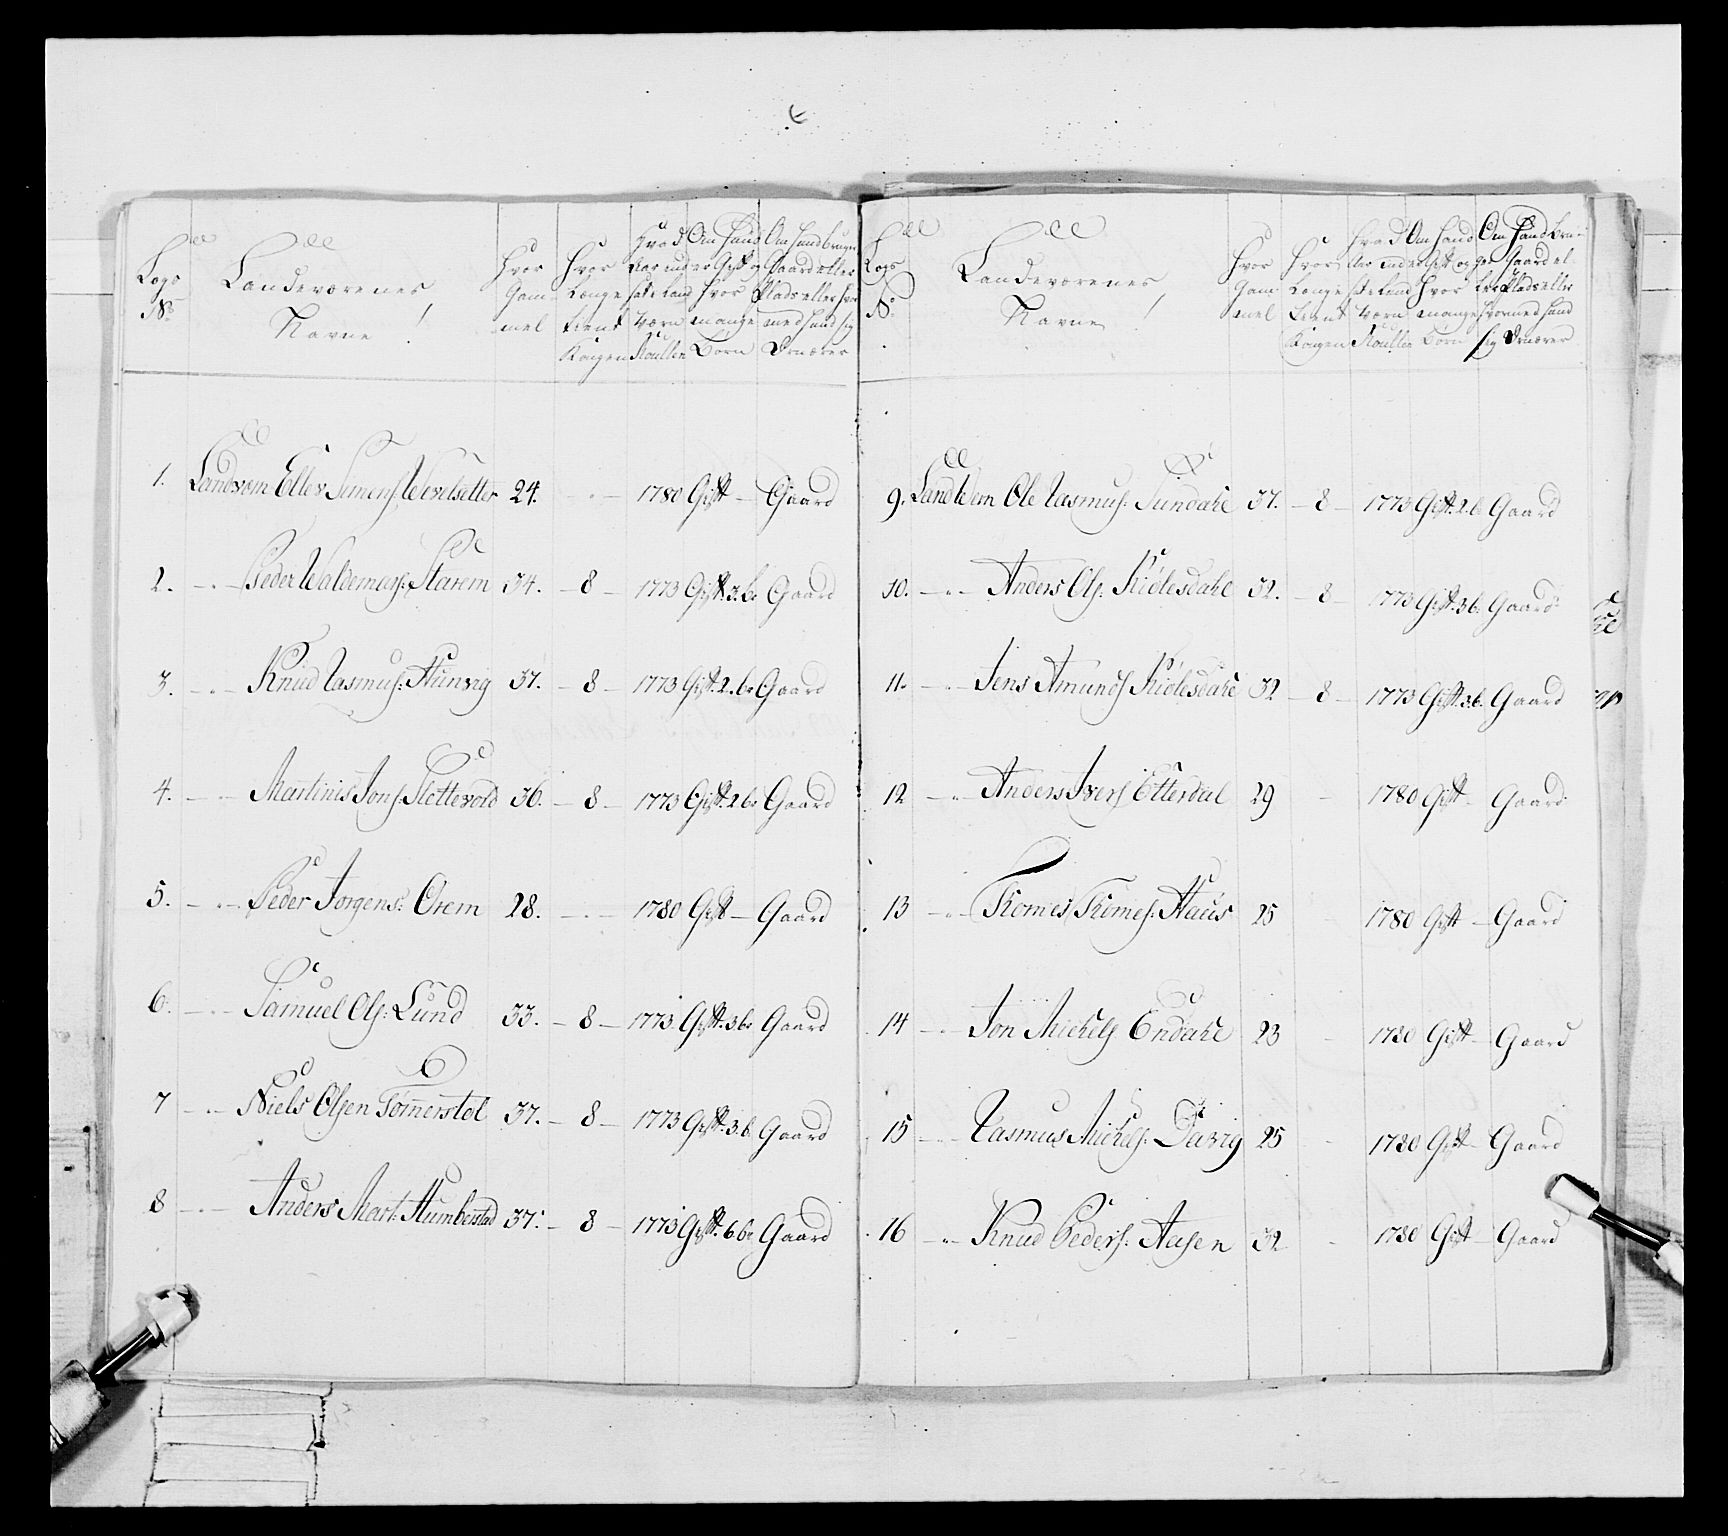 Logs No
Landeværenes Navne!
Hvor Gammel
Hvor Længe tient Kongen
Hvad Aar ind sat i Land Værn Roullen
Om Hand er Gift og Hvor mange Börn
Om Hand bruger Gaard eller Plads eller hvor med hand sig Ernærer
1. Landværn Eller Simens Werelsetter 24. — 1780 Gift — Gaard
2. — Peder Waldemars: Starem 34. — 8 — 1773 Gift. 3. b. Gaard
3. — Knud Rasmus: Hunvig 37. — 8 — 1773 Gift. 2. b. Gaard
4. — Martinis Jons. Slettevold 36. — 8 — 1773 Gift. 2 b. Gaard
5. — Peder Jorgens: Orem 28. — 1780 Gift — Gaard
6. — Samuel Ols: Lund 33. — 8 — 1773. Gift. 3 b. Gaard
7 — Niels Olsen Tommerstøl 37. — 8 — 1773 Gift. 3. b. Gaard
8 — Anders Mart: Humberstad 37. — 8 — 1773 Gift. 6 b. Gaard
Logs No
Landeværenes Navne!
Hvor Gammel
Hvor Længe tient Kongen
Hvad Aar ind sat i Land Værn Roullen
Om Hand er Gift og Hvor mange Börn
Om Hand bruger Gaard eller Plads eller hvormed hand sig Ernærer
9. Landværn Ole Rasmus: Sundahl 37. — 8 — 1773 Gift. 2. b Gaard
10. — Anders Ols. Kiølesdahl 32. — 8 — 1773 Gift. 3 b. Gaard
11. — Jens Amunds Kiølesdahl 32 — 8 — 1773 Gift. 3 b. Gaard
12 — Anders Ivers Etterdal 29 — 1780 Gift — Gaard
13 — Thomes Thomes: Haus 25 1780 Gift — Gaard
14 — Jon Michels Endahl 23 — 1780 Gift — Gaard
15 — Rasmus Michels. Davig 25 — 1780 Gift — Gaard
16 — Knud Peders: Aasen 32 — 1780 Gift — Gaard